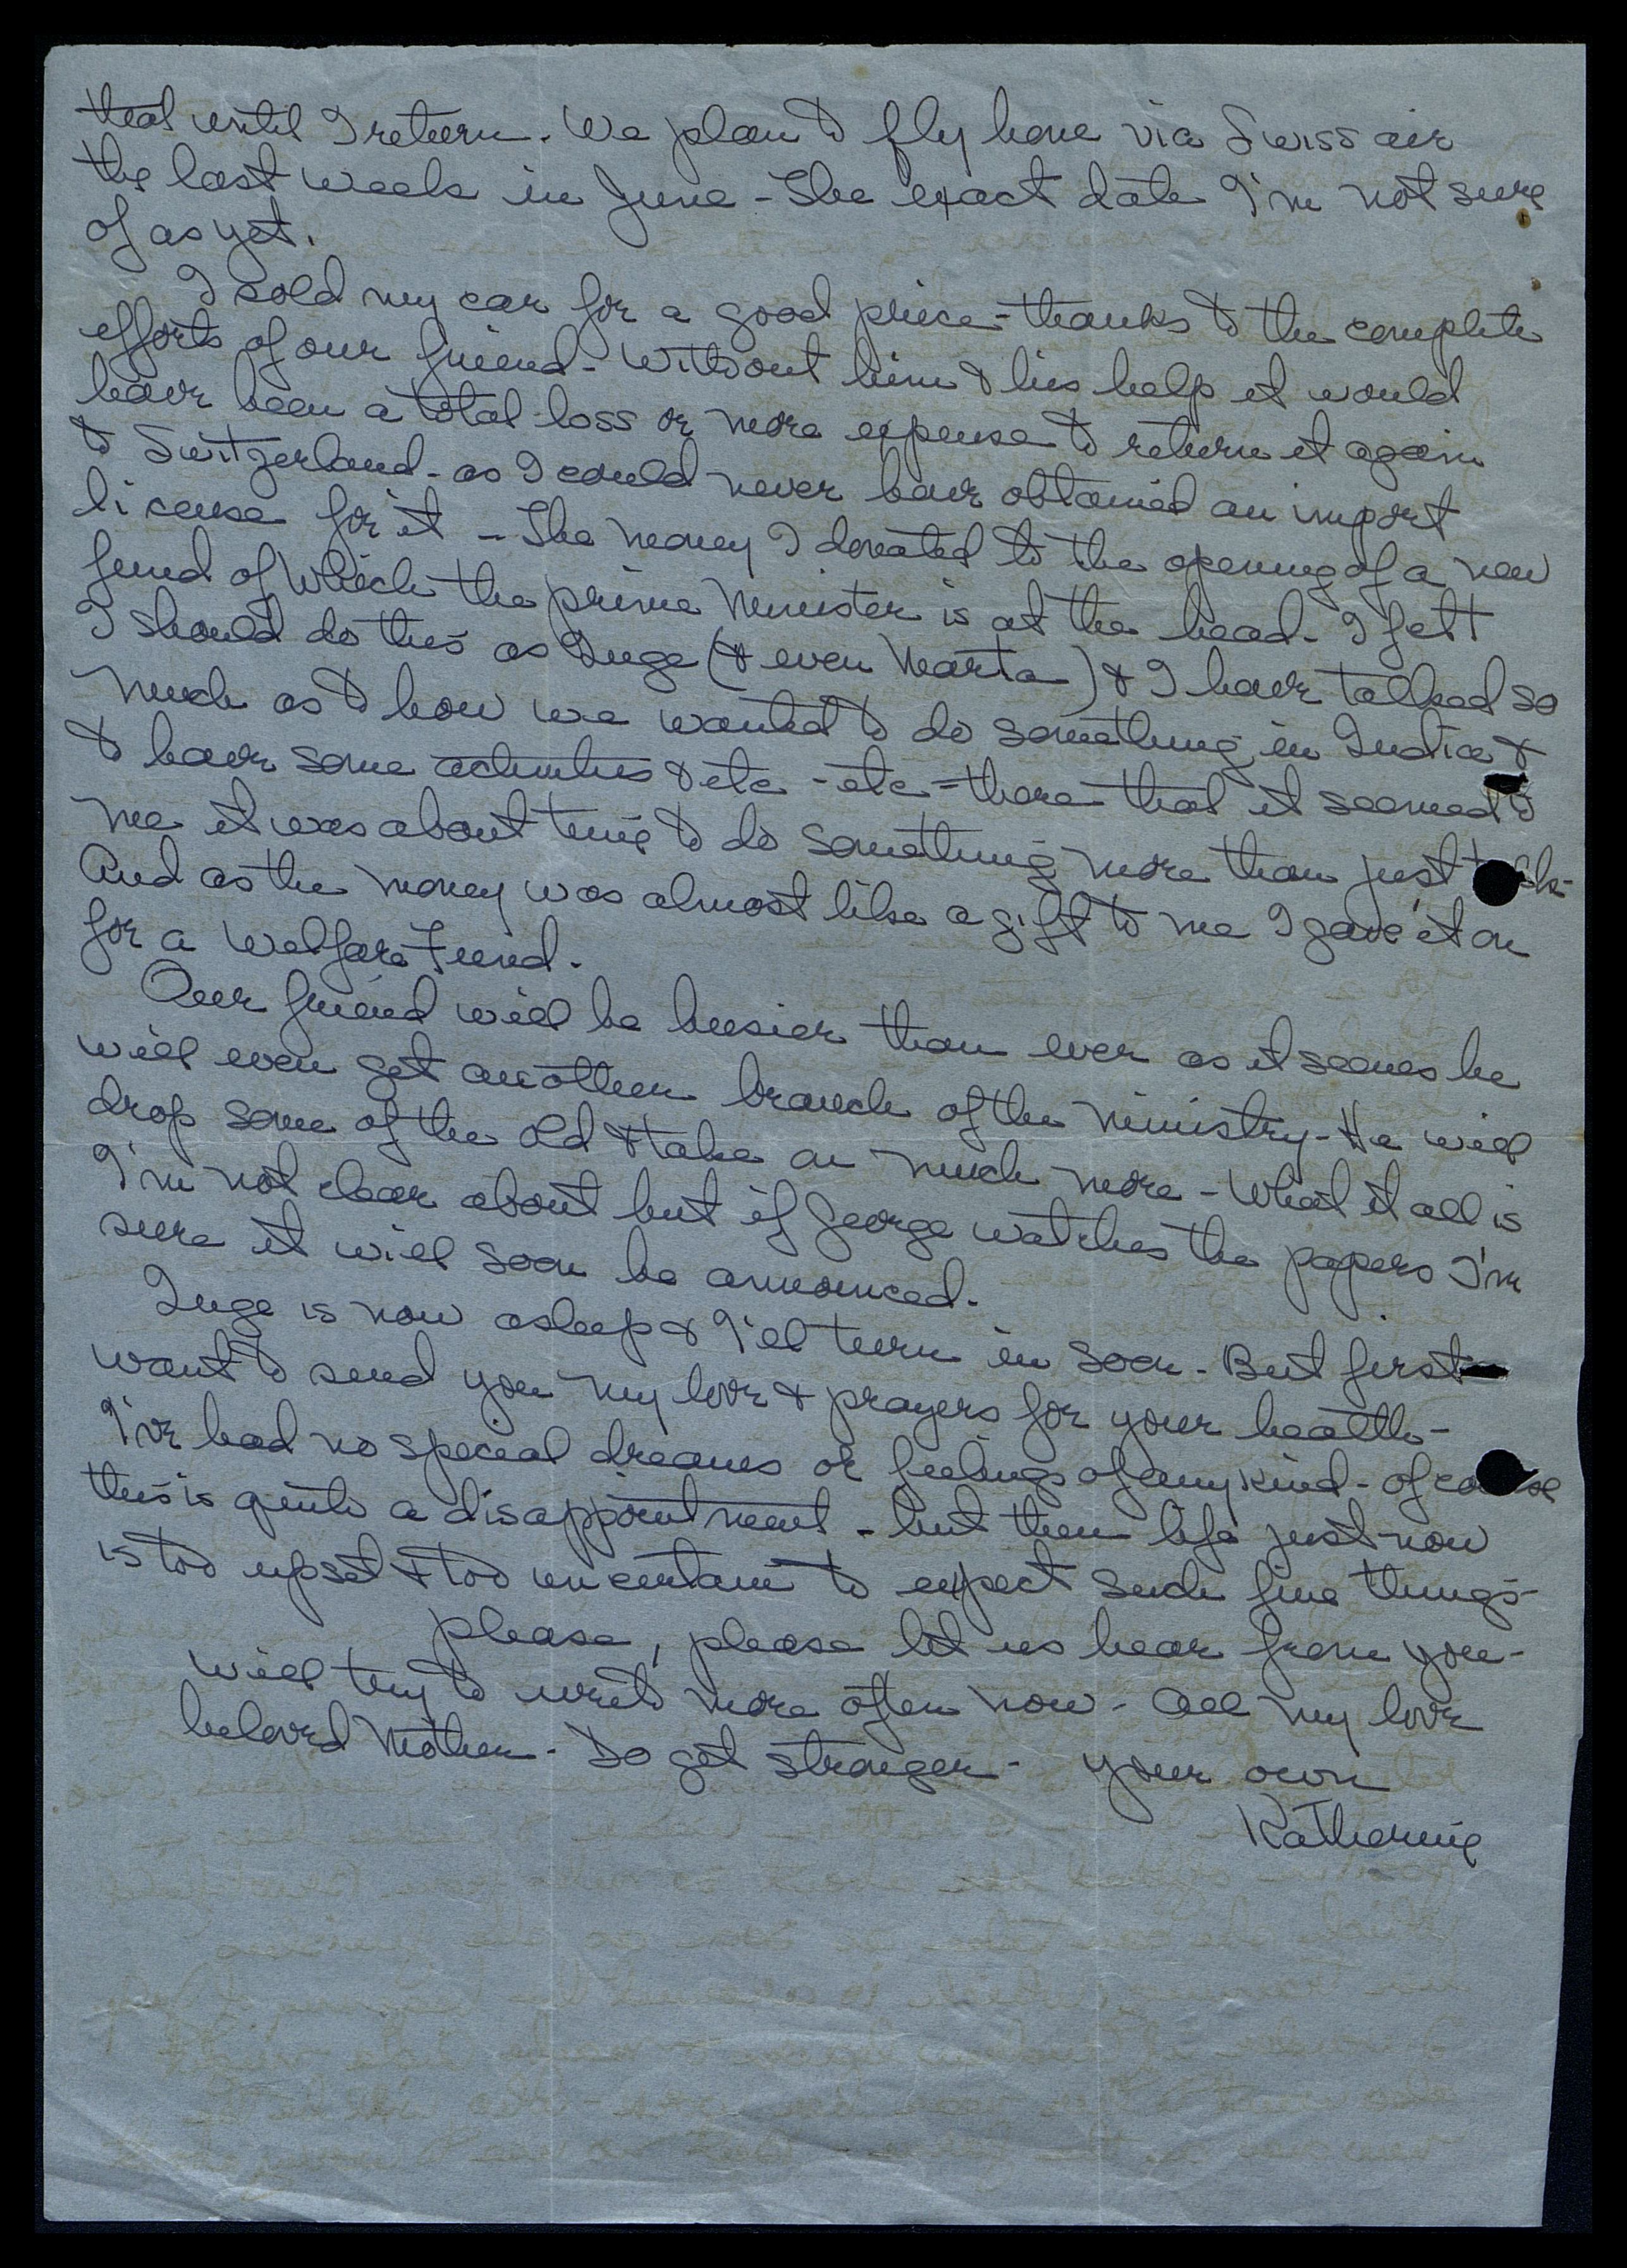 that until I return. We plan to fly home via Swiss air
the last week in June - The exact date I'm not sure
of as yet.
I sold my car for a good price - thanks to the complete
efforts of our friend - Without him & his help it would
have been a total loss or more expense to return it again
to Switzerland - as I could never have obtained an import
license for it - The money I donated to the opening of a new
fund of which the prime Minister is at the head - I felt
I should do this as Inge (& even Marta) & I have talked so
much as to how we wanted to do something in India &
to have some activities & etc - etc - there that it seemed to
me it was about time to do something more than just talk -
And as the money was almost like a gift to me I gave it on
for a Welfare Fund.
Our friend will be busier than ever as it seems he
will even get another branch of the ministry - He will
drop some of the old & take on much more - What it all is
I'm not clear about but if George watches the papers I'm
sure it will soon be announced.
Inge is now asleep & I'll turn in soon - But first
want to send you my love & prayers for your health -
I've had no special dreams or feelings of any kind - of course
this is quite a disappointment - but then life just now
is too upset & too uncertain to expect such fine things -
please, please let us hear from you -
will try to write more often now - All my love
beloved Mother - Do get stronger - your own
Katherine